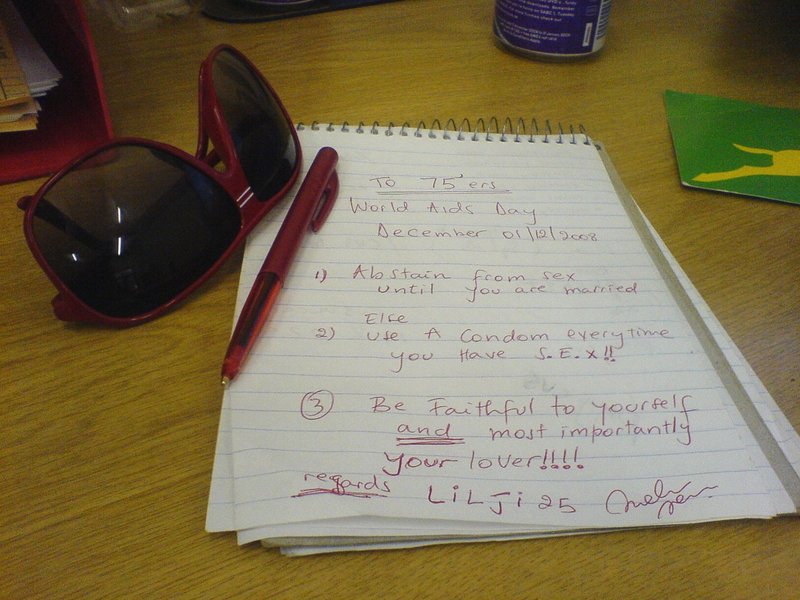 To 75'ers
World Aids Day
December 01/12/2008
1) Abstain from sex
until you are married
Else
2) Use A Condom everytime
you Have S.E.X!!
3 Be Faithful to yourself
and most importantly
your lover!!!!
regards LiLJi 25